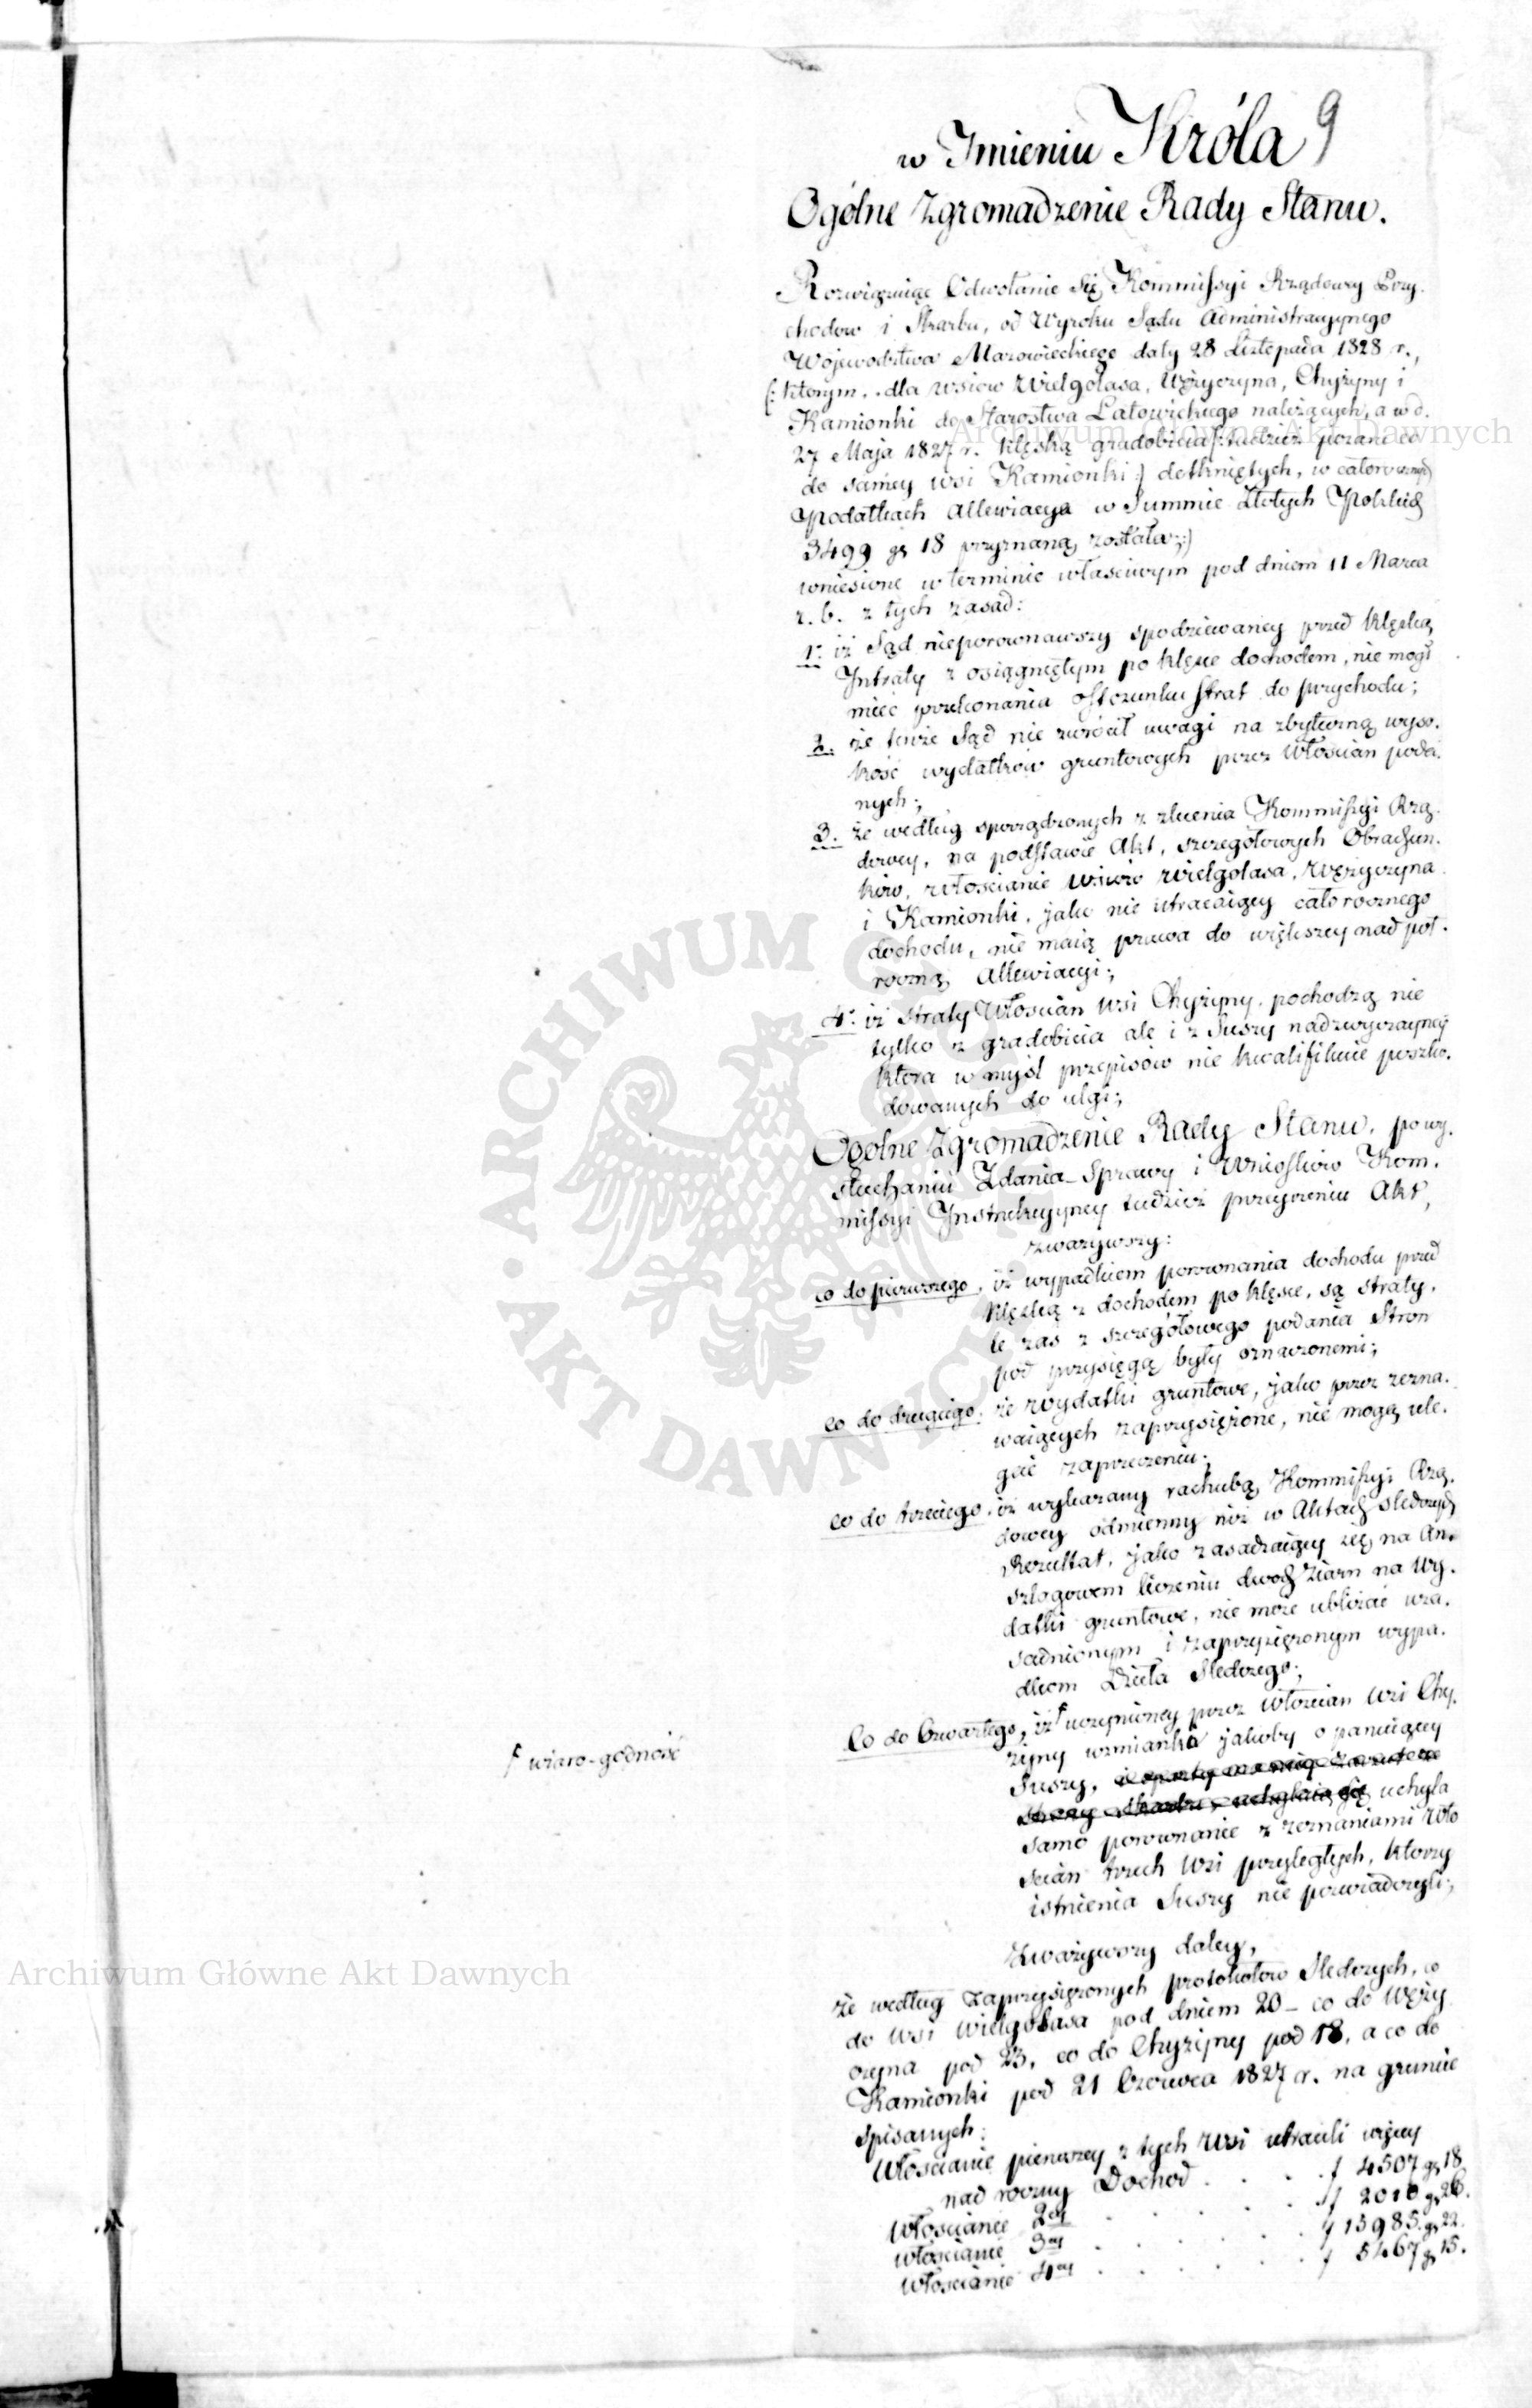 9
w Imieniu Króla
Ogólne Zgromadzenie Rady Stanu.
Rozwiązuiąc Odwołanie Się Kommissyi Rządowey Przy-
chodow i Skarbu, od Wyroku Sądu Administracyinego
Woiewodztwa Mazowieckiego daty 28 Listopada 1828 r.,
(: którym, dla wsiow Wielgolasa, Wężyczyna, Chyżyny i
Kamionki do Starostwa Latowickiego należących, a w d.
27 Maja 1827 r. klęską gradobicia tudzież co
do samey wsi Kamionki :) dotkniętych, w całorocznych
Podatkach allewiacya w Summie Złotych Polskich
3499 gr 18 przyznaną została;:)
wniesione w terminie właściwym pod dniem 11 Marca
r. b. z tych zasad:
1.° iż Sąd nieporownawszy spodziewaney przed klęską
Intraty z osiągniętym po klęsce dochodem, nie mogł
mieć przekonania o stosunku strat do przychodu;
2. że tenże Sąd nie zwrócił uwagi na zbyteczną wyso-
kość wydatków gruntowych przez Włościan poda-
nych;
3. że według sporządzonych z zlecenia Kommissyi Rzą-
dowey, na podstawie Akt, szczegółowych Obrachun-
ków, Włościanie wsiów Wielgolasa, Wężyczyna
i Kamionki, jako nie utracaiący całorocznego
dochodu, nie maią prawa do większey nad pół-
roczną Allewiacyi;
4.° iż straty Włościan wsi Chyżyny, pochodzą nie
tylko z gradobicia ale i z Suszy nadzwyczayney
która w myśl przepisów nie kwalifikuie poszko-
dowanych do ulgi;
Ogólne Zgromadzenie Rady Stanu, po wy-
słuchaniu Zdania-Sprawy i Wniosków Kom-
missyi Instrukcyiney tudzież przeyrzeniu Akt,
zważywszy:
co do pierwszego, iż wypadkiem porownania dochodu przed
klęską z dochodem po klęsce, są straty,
te zaś z szczegółowego podania Stron
pod przysięgą były oznaczonemi;
co do drugiego, że wydatki gruntowe, jako przez zezna-
waiących zaprzysiężone, nie mogą ule-
gać zaprzeczeniu;
co do trzeciego, iż wykazany rachubą Kommissyi Rzą-
dowey odmienny niż w Aktach śledczych
Rezultat, jako zasadzaiący się na An-
szlagowem liczeniu dwoch Ziarn na wy-
datki gruntowe, nie może ubliżać uza-
sadnionym i zaprzysiężonym wypa-
dkom Dzieła Śledczego;
Co do Czwartego, iż ƒ uczynioney przez włościan wsi Chy-
żyny wzmianki jakoby o panuiącey
ƒ wiaro-godność
Suszy, uchyla
samo porownanie z zeznaniami Wło
ścian trzech wsi przyległych, którzy
istnienia Suszy nie poświadczyli;
Zważywszy daley,
że według zaprzysiężonych protokołow Śledczych, co
do wsi Wielgolasa pod dniem 20 - co do Węży
czyna pod 23, co do Chyżyny pod 18, a co do
Kamionki pod 21 Czerwca 1827 r. na gruncie
spisanych:
Włościanie pierwszey z tych wsi utracili więcey
nad roczny Dochod . . . . f 4507 gr 18
Włościanie 2ey . . . . f 2010 gr 26.
Włościanie 3ey . . . . f 13985 gr 22.
Włościanie 4ey . . . . f 5467 gr 15.
Archiwum Główne Akt Dawnych
Archiwum Główne Akt Dawnych
ARCHIWUM GŁÓWNE AKT DAWNYCH